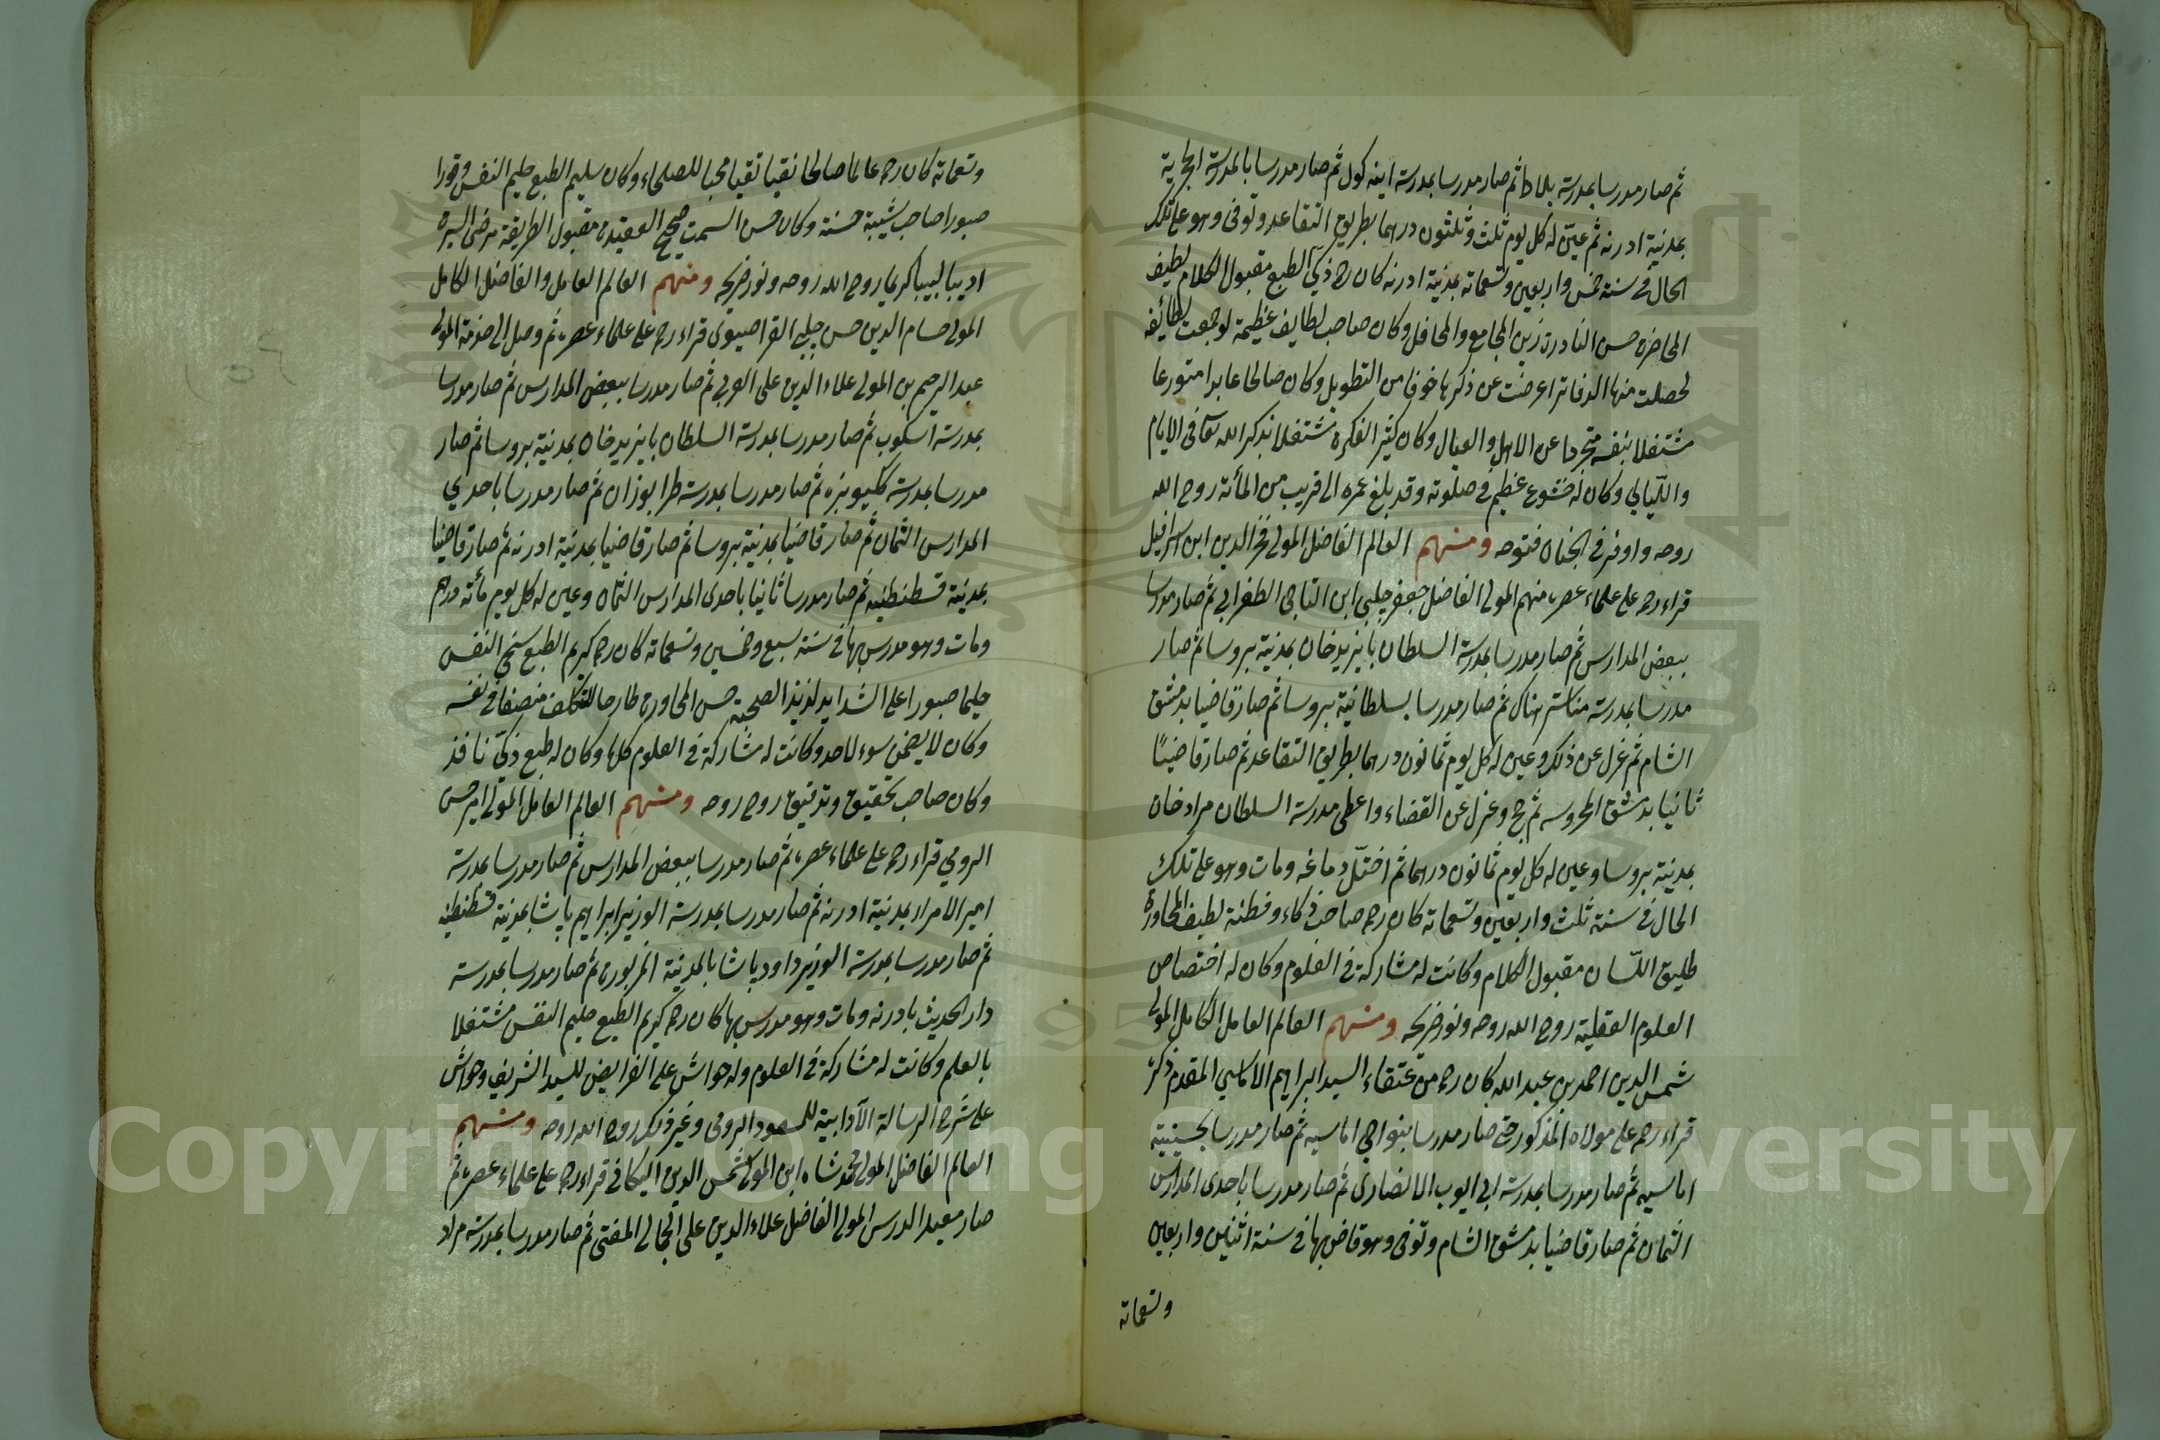 ثم صار مدرسا بمدرسة بلاط ثم صار مدرسا بمدرسة اينه كول ثم صار مدرسا بالمدرسة الحجرية
بمدينة ادرنه ثم عين له كل يوم ثلث وثلثون درهما بطريق التقاعد وتوفى وهو على تلك
الحال فى سنة خمس واربعين وتسعمائة بمدينة ادرنه كان رحمه ذكى الطبع مقبول الكلام لطيف
المحاضرة حسن النادرة زين المجامع والمحافل وكان صاحب لطايف عظيمة لو جمعت لطائفه
لحصلت منها الدفاتر اعرضت عن ذكرها خوفا من التطويل وكان صالحا عابدا متورعا
مشتغلا بنفسه متجردا عن الاهل والعيال وكان كثير الفكرة مشتغلا بذكر الله تعالى فى الايام
والليالى وكان له خشوع عظيم فى صلوته وقد بلغ عمره الى قريب من المائة روح الله
روحه واوفر فى الجنان فتوحه ومنهم العالم الفاضل المولى فخر الدين ابن اسرافيل
قراء رحمه على علماء عصره منهم المولى الفاضل جعفر چلبى ابن التاجى الطغرايى ثم صار مدرسا
ببعض المدارس ثم صار مدرسا بمدرسة السلطان بايزيد خان بمدينة بروسا ثم صار
مدرسا بمدرسة مناستر هناك ثم صار مدرسا بسلطانية بروسا ثم صار قاضيا بدمشق
الشام ثم عزل عن ذلك وعين له كل يوم ثمانون درهما بطريق التقاعد ثم صار قاضيا
ثانيا بدمشق المحروسه ثم حج وعزل عن القضاء واعطى مدرسة السلطان مراد خان
بمدينة بروسا وعين له كل يوم ثمانون درهما ثم اختل دماغه ومات وهو على تلك
الحال فى سنة ثلث واربعين وتسعمائة كان رحمه صاحب ذكاء وفطنة لطيف المحاورة
طليق اللسان مقبول الكلام وكانت له مشاركة فى العلوم وكان له اختصاص
العلوم العقلية روح الله روحه ونور ضريحه ومنهم العالم العامل الكامل المولى
شمس الدين احمد بن عبد الله كان رحمه من عتقاء السيد ابراهيم الاماسى المقدم ذكره
قراء رحمه على مولاه المذكور حتى صار مدرسا بنواحى اماسيه ثم صار مدرسا بحسينية
اماسيه ثم صار مدرسا بمدرسة ابى ايوب الانصارى ثم صار مدرسا باحدى المدارس
الثمان ثم صار قاضيا بدمشق الشام وتوفى وهو قاض بها فى سنة اثنين واربعين
وتسعمائة
وتسعمائة كان رحمه عالما صالحا نقيا تقيا محبا للصلحاء وكان سليم الطبع حليم النفس وقورا
صبورا صاحب شيبة حسنة وكان حسن السمت صحيح العقيدة مقبول الطريقة مرضى السيرة
اديبا لبيبا كريما روح الله روحه ونور ضريحه ومنهم العالم العامل والفاضل الكامل
المولى حسام الدين حسن چلبى القراصيوى قراء رحمه على علماء عصره ثم وصل الى خدمة المولى
عبد الرحيم بن المولى علاء الدين على العربى ثم صار مدرسا ببعض المدارس ثم صار مدرسا
بمدرسة اسكوب ثم صار مدرسا بمدرسة السلطان بايزيد خان بمدينة بروسا ثم صار
مدرسا بمدرسة ككيبوزه ثم صار مدرسا بمدرسة طرابوزان ثم صار مدرسا باحدى
المدارس الثمان ثم صار قاضيا بمدينة بروسا ثم صار قاضيا بمدينة ادرنه ثم صار قاضيا
بمدينة قسطنطنيه ثم صار مدرسا ثانيا باحدى المدارس الثمان وعين له كل يوم مأئة درهم
ومات وهو مدرس بها فى سنة سبع وخمسين وتسعمائة كان رحمه كريم الطبع سخى النفس
حليما صبورا على الشدايد لذيذ الصحبة حسن المحاورة طارحا للتكلف منصفا فى نفسه
وكان لا يضمر سوء لاحد وكانت له مشاركة فى العلوم كلها وكان له طبع ذكى نافذ
وكان صاحب تحقيق وتدقيق روح روحه ومنهم العالم العامل المولى امير حسن
الرومى قراء رحمه على علماء عصره ثم صار مدرسا ببعض المدارس ثم صار مدرسا بمدرسة
امير الامراء بمدينة ادرنه ثم صار مدرسا بمدرسة الوزير ابراهيم پاشا بمدينة قسطنطنيه
ثم صار مدرسا بمدرسة الوزير داود پاشا بالمدينة المزبورة ثم صار مدرسا بمدرسة
دار الحديث بادرنه ومات وهو مدرس بها كان رحمه كريم الطبع حليم النفس مشتغلا
بالعلم وكانت له مشاركة فى العلوم وله حواش على الفرايض للسيد الشريف وحواش
على شرح الرسالة الآدابية للمسعود الرومى وغير ذلك روح الله روحه ومنهم
العالم الفاضل المولى محمد شاه ابن المولى شمس الدين اليكانى قراء رحمه على علماء عصره ثم
صار معيدا لدرس المولى الفاضل علاء الدين على الجمالى المفتى ثم صار مدرسا بمدرسة مراد
Copyright © King Saud University